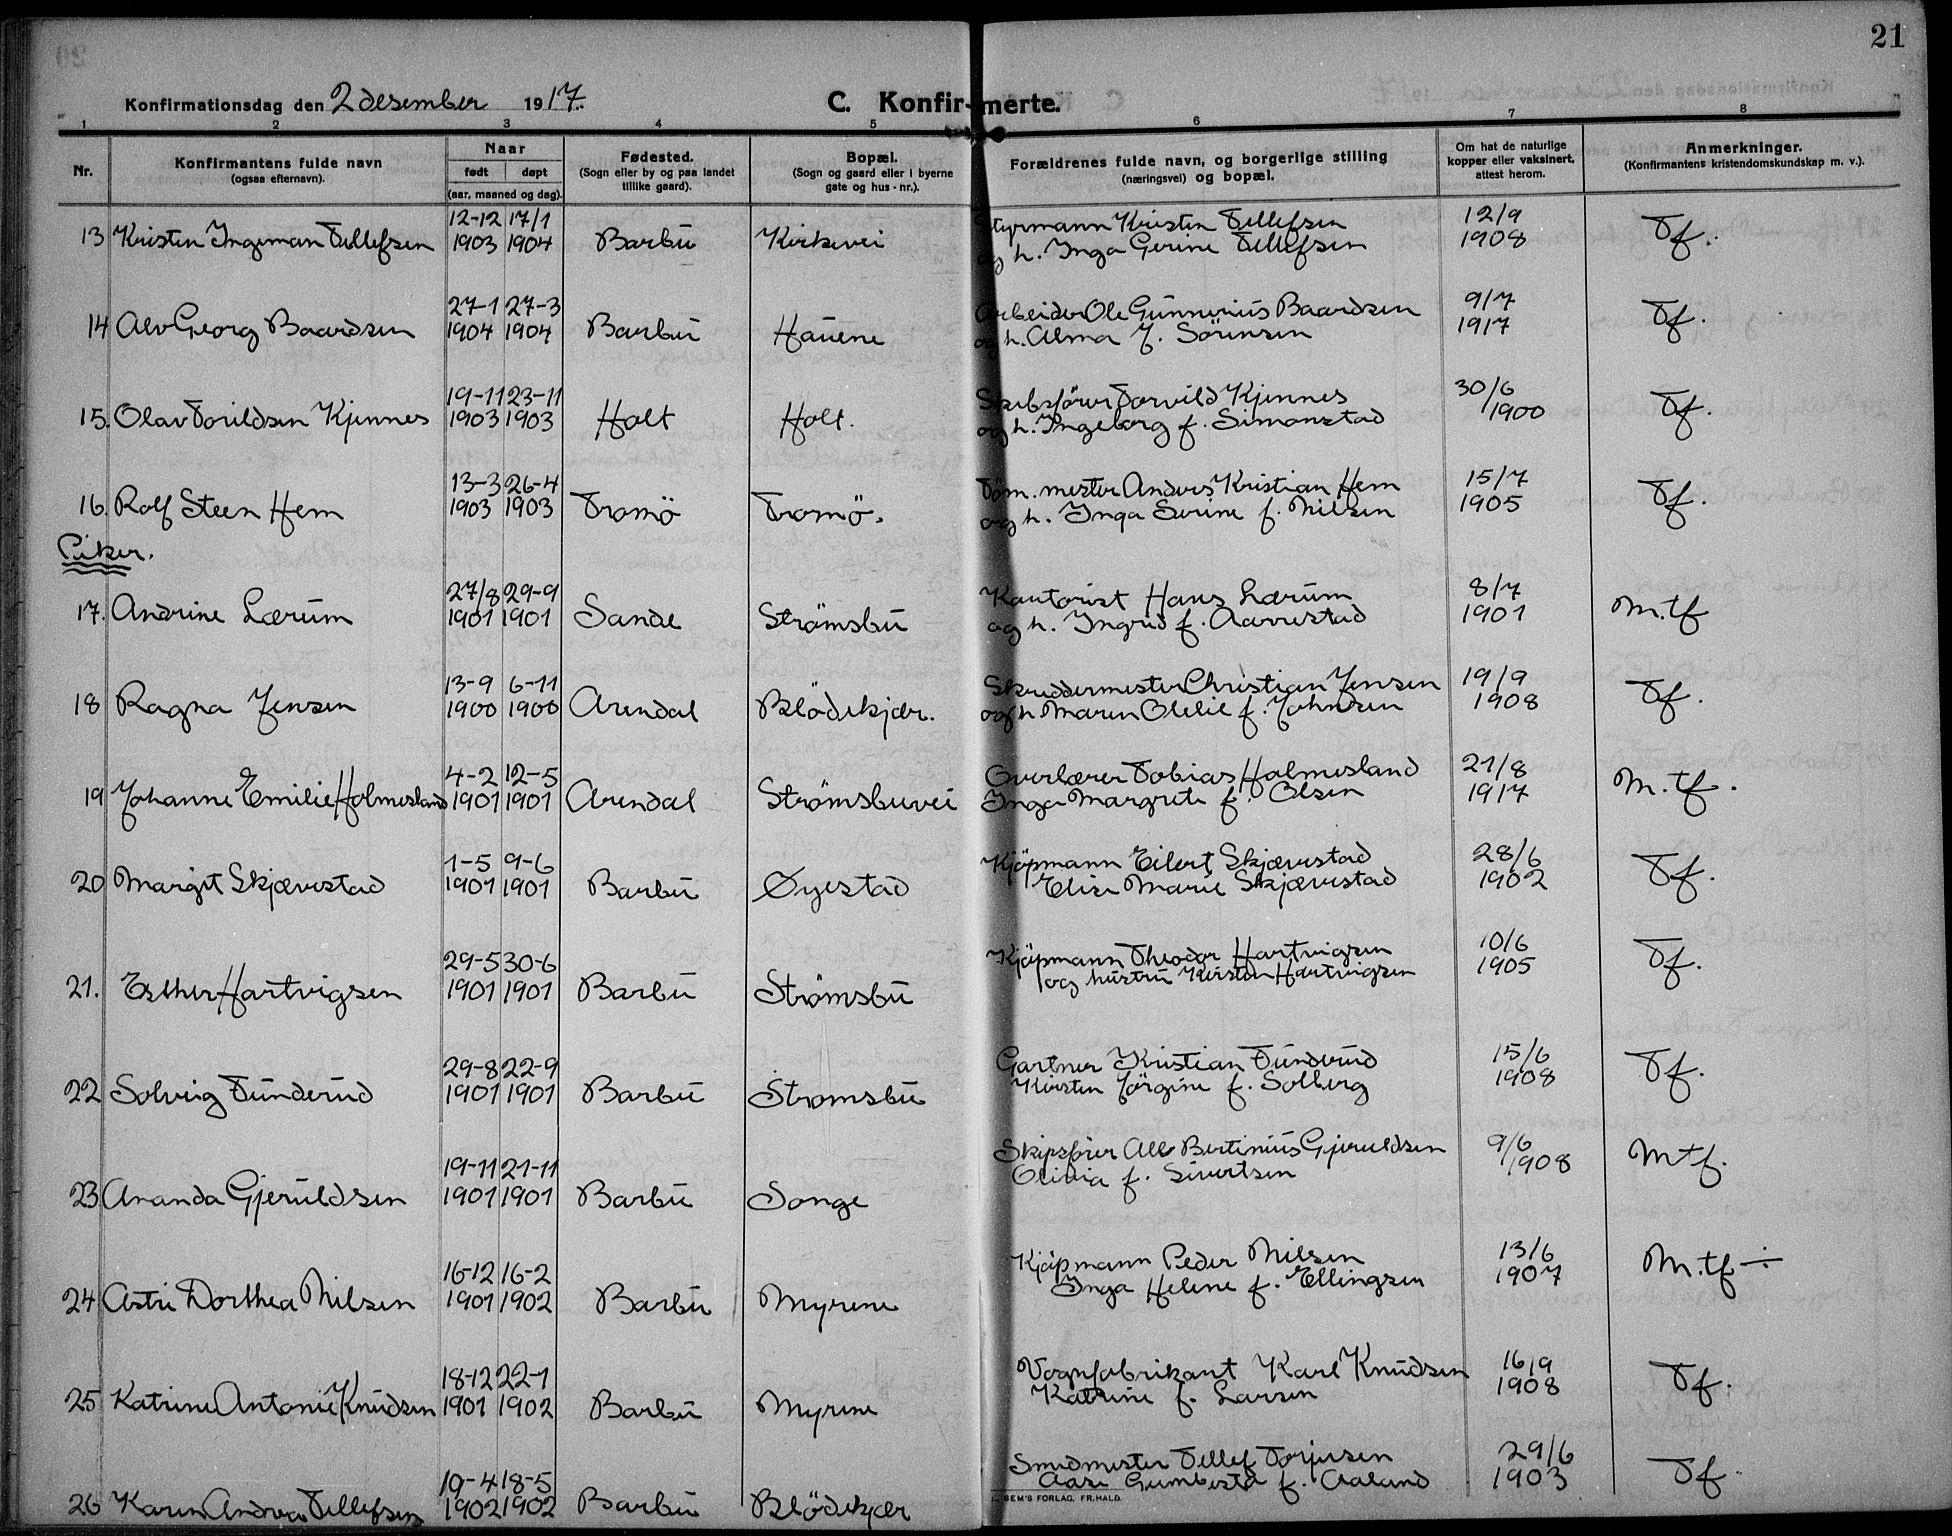 21
Konfirmationsdag den 2 desember 1917. C. Konfirmerte.
1 2 3 4 5 6 7 8
Nr.
Konfirmantens fulde navn
(ogsaa efternavn).
Naar
født døpt
(aar, maaned og dag).
Fødested.
(Sogn eller by og paa landet
tillike gaard).
Bopæl.
(Sogn og gaard eller i byerne
gate og hus-nr.).
Forældrenes fulde navn, og borgerlige stilling
(næringsvei) og bopæl.
Om hat de naturlige
kopper eller vaksinert,
attest herom.
Anmerkninger.
(Konfirmantens kristendomskundskap m. v.).
12-12 17/1 Styrmann Kristen Tellefsen 12/9
13 Kristen Ingeman Tellefsen 1903 1904 Barbu Kirkevei og h. Inga Gerine Tellefsen 1908 Tf.
27-1 27-3 Arbeider Ole Gunnerius Baardsen 9/7
14 Alv Georg Baardsen 1904 1904 Barbu Hauene og h. Alma f. Sörensen 1917 Tf.
19-11 23-11 Skibsförer Torvild Kjennes 30/6
15. Olav Torildsen Kjennes 1903 1903 Holt Holt. og h. Ingeborg f. Simonstad 1900 Tf.
13-3 26-4 Töm. mester Anders Kristian Hem 15/7
16. Rolf Steen Hem 1903 1903 Tromö Tromö. og h. Inga Serine f. Nilsen 1905 Tf.
Piker.
27/8 29-9 Kontorist Hans Lærum 8/7
17. Andrine Lærum 1901 1901 Sande Strömsbu og h. Ingrid f. Aarrestad 1901 M.tf
13-9 6-11 Skreddermester Christian Jensen 19/9
18 Ragna Jensen 1900 1900 Arendal Blödekjær. og h. Maren Olelie f. Johnsen 1908 Tf.
4-2 12-5 Overlærer Tobias Holmesland 21/8
19 Johanne Emilie Holmesland 1901 1901 Arendal Strömsbuvei Inga Margrete f. Olsen 1917 M.tf.
1-5 9-6 Kjöpmann Eilert Skjævestad 28/6
20 Margit Skjævestad 1901 1901 Barbu Øyestad Elise Marie Skjævestad 1902 Tf.
29-5 30-6 Kjöpmann Theodor Hartvigsen 10/6
21. Esther Hartvigsen 1901 1901 Barbu Strömsbu og hustru Kirsten Hartvigsen 1905 Tf.
29-8 22-9 Gartner Kristian Tunderud 15/6
22 Solveig Tunderud 1901 1901 Barbu Stromsbu Kirsten Jörgine f. Solberg 1908 Tf.
19-11 21-11 Skipsförer Alb Bertinius Gjeruldsen 9/6
23 Ananda Gjeruldsen 1901 1901 Barbu Songe Olivia f. Sivertsen 1908 Mtf.
16-12 16-2 Kjöpmann Peder Nilsen 13/6
24 Astri Dorthea Nilsen 1901 1902 Barbu Myrene Inga Helene f. Ellingsen 1907 M.tf ÷
18-12 22-1 Vognfabrikant Karl Knudsen 16/9
25 Katrine Antonie Knudsen 1901 1902 Barbu Myrene Katrine f. Larsen 1908 Tf.
19-4 18-5 Smedmester Tellef Torjusen 29/6
26 Karen Andrea Tellefsen 1902 1902 Barbu Blödekjær Aase f. Aaland 1903 Tf.
SEM'S FORLAG, FR.HALD.